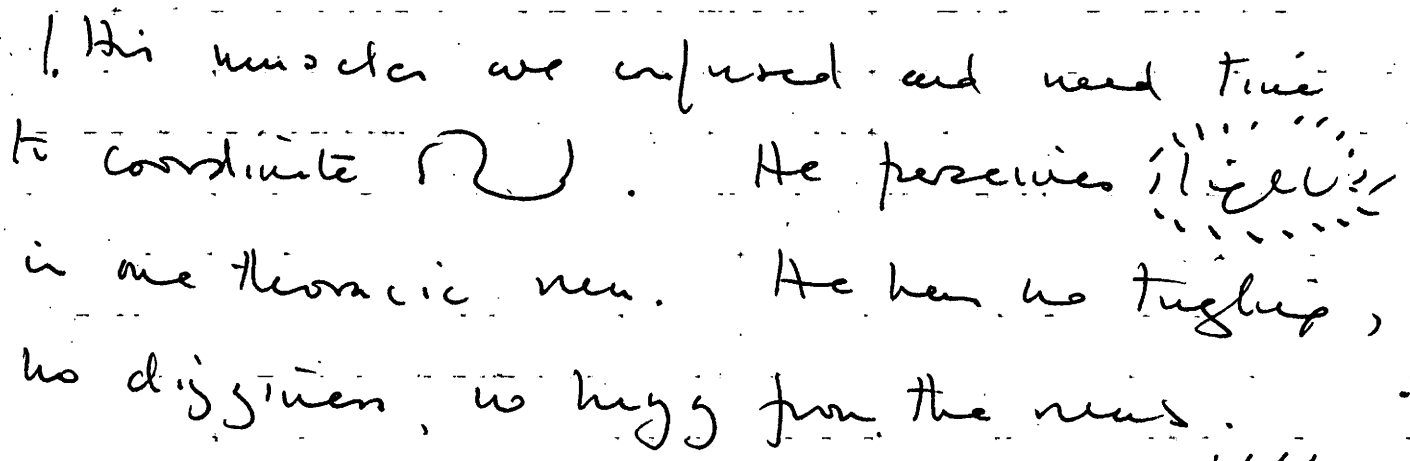 1. His muscles are confused and need time
to coordinate . He perceives light
in one thoracic . He has no tingling,
no dizziness, no from the .